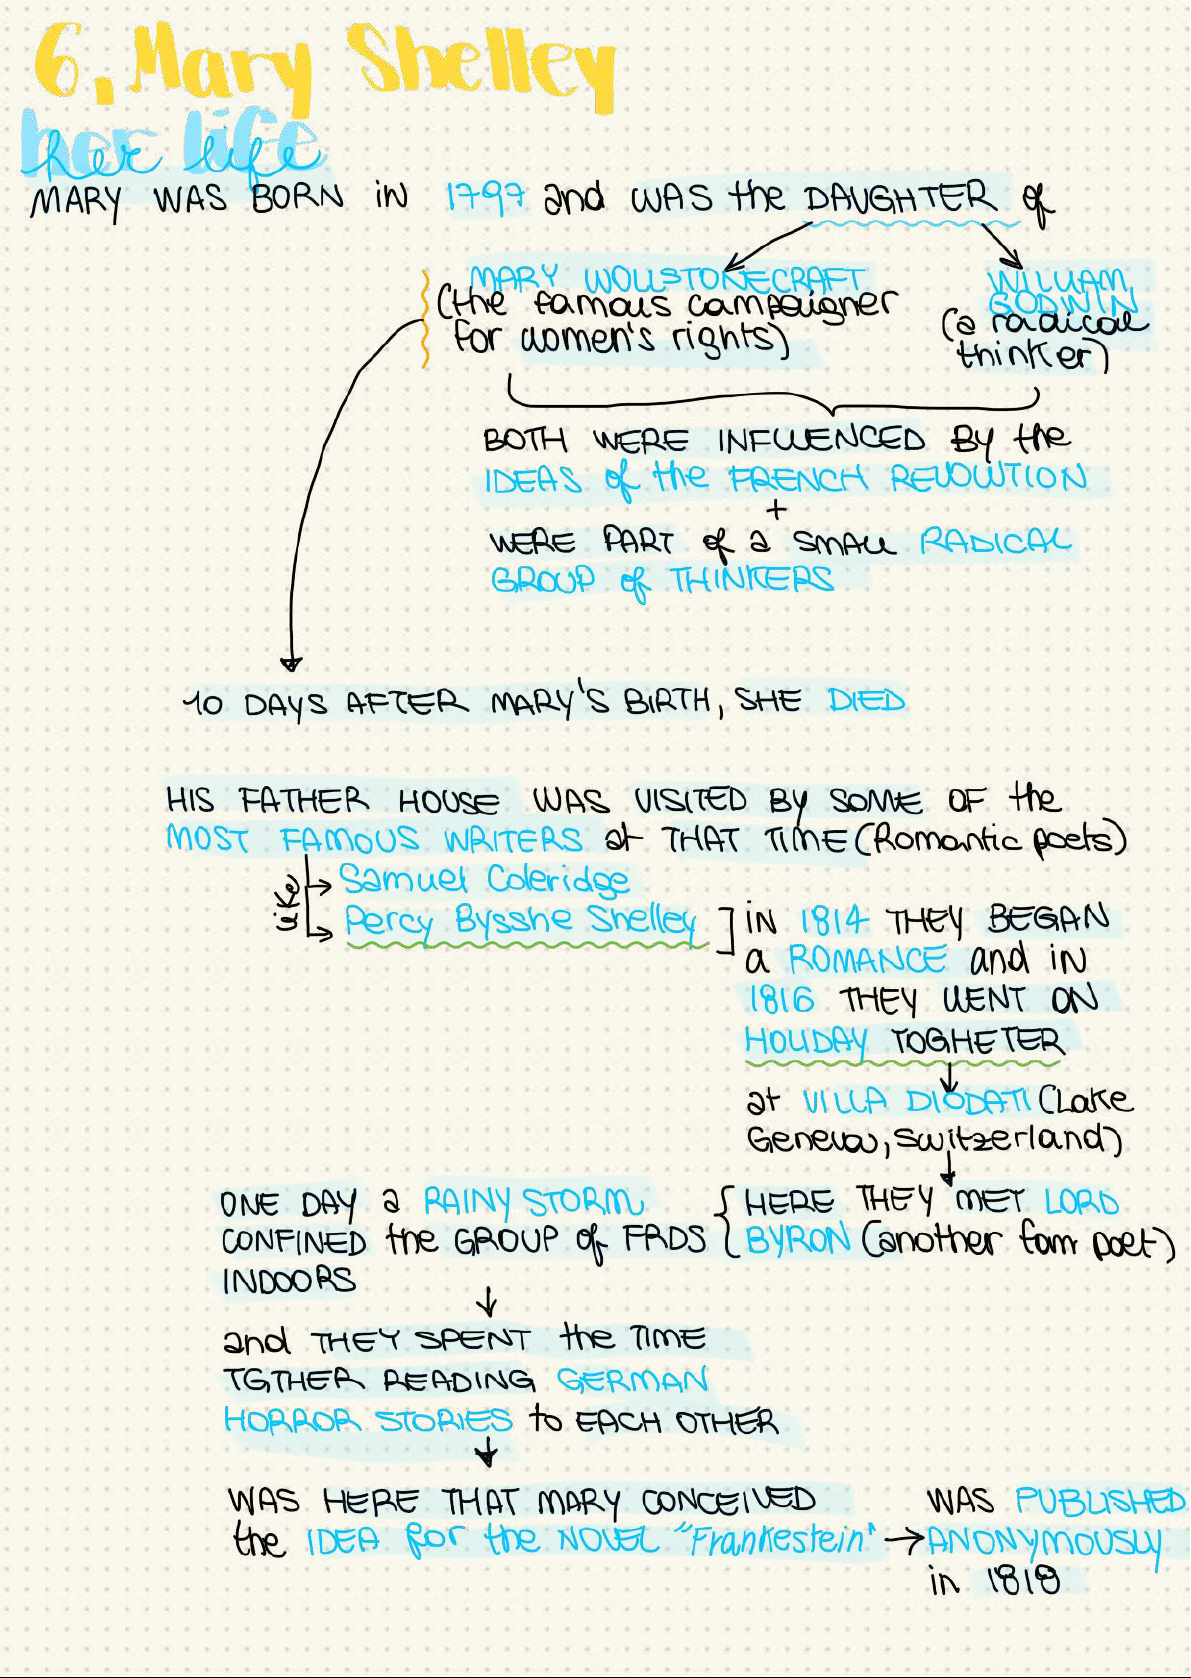 6. Mary Shelley
her life
MARY WAS BORN in 1797 and WAS the DAUGHTER of
MARY WOLLSTONECRAFT
(the famous campaigner
for women's rights)
WILLIAM
GODWIN
(a radical
thinker)
BOTH WERE INFLUENCED BY the
IDEAS of the FRENCH REVOLUTION
+
WERE PART of a SMALL RADICAL
GROUP of THINKERS
10 DAYS AFTER MARY'S BIRTH, SHE DIED
HIS FATHER HOUSE WAS VISITED BY SOME OF the
MOST FAMOUS WRITERS at THAT TIME (Romantic poets)
like
Samuel Coleridge
Percy Bysshe Shelley
IN 1814 THEY BEGAN
a ROMANCE and in
1816 THEY WENT ON
HOLIDAY TOGHETER
at VILLA DIODATI (Lake
Geneva, Switzerland)
HERE THEY MET LORD
BYRON (another fam poet)
ONE DAY a RAINY STORM
CONFINED the GROUP of FRDS
INDOORS
and THEY SPENT the TIME
TGTHER READING GERMAN
HORROR STORIES to EACH OTHER
WAS HERE THAT MARY CONCEIVED
the IDEA for the NOVEL "Frankestein"
WAS PUBLISHED
ANONYMOUSLY
in 1818